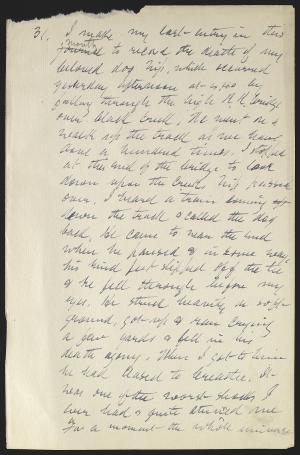 31. I make my last entry in this
month
journal to record the death of my
beloved dog Nip, which occurred
yesterday afternoon at 4.20 by
falling through the high R.R. bridge
over black creek. We went on a
walk up the track as we have
done a hundred times. I stopped
at the end of the bridge to look
down upon the Creek, Nip passed
over. I heard a train coming
down the track & called the dog
back, he came to near the end
when he paused & in some way
his hind feet slipped off the tie
& he fell through before my
eyes. He struck heavily on
ground, got up & ran crying
a few yards & fell in his
death agony. When I got to him
he had ceased to breathe. It
was one of the worst shocks I
ever had & quite stunned me
For a moment the whole universe